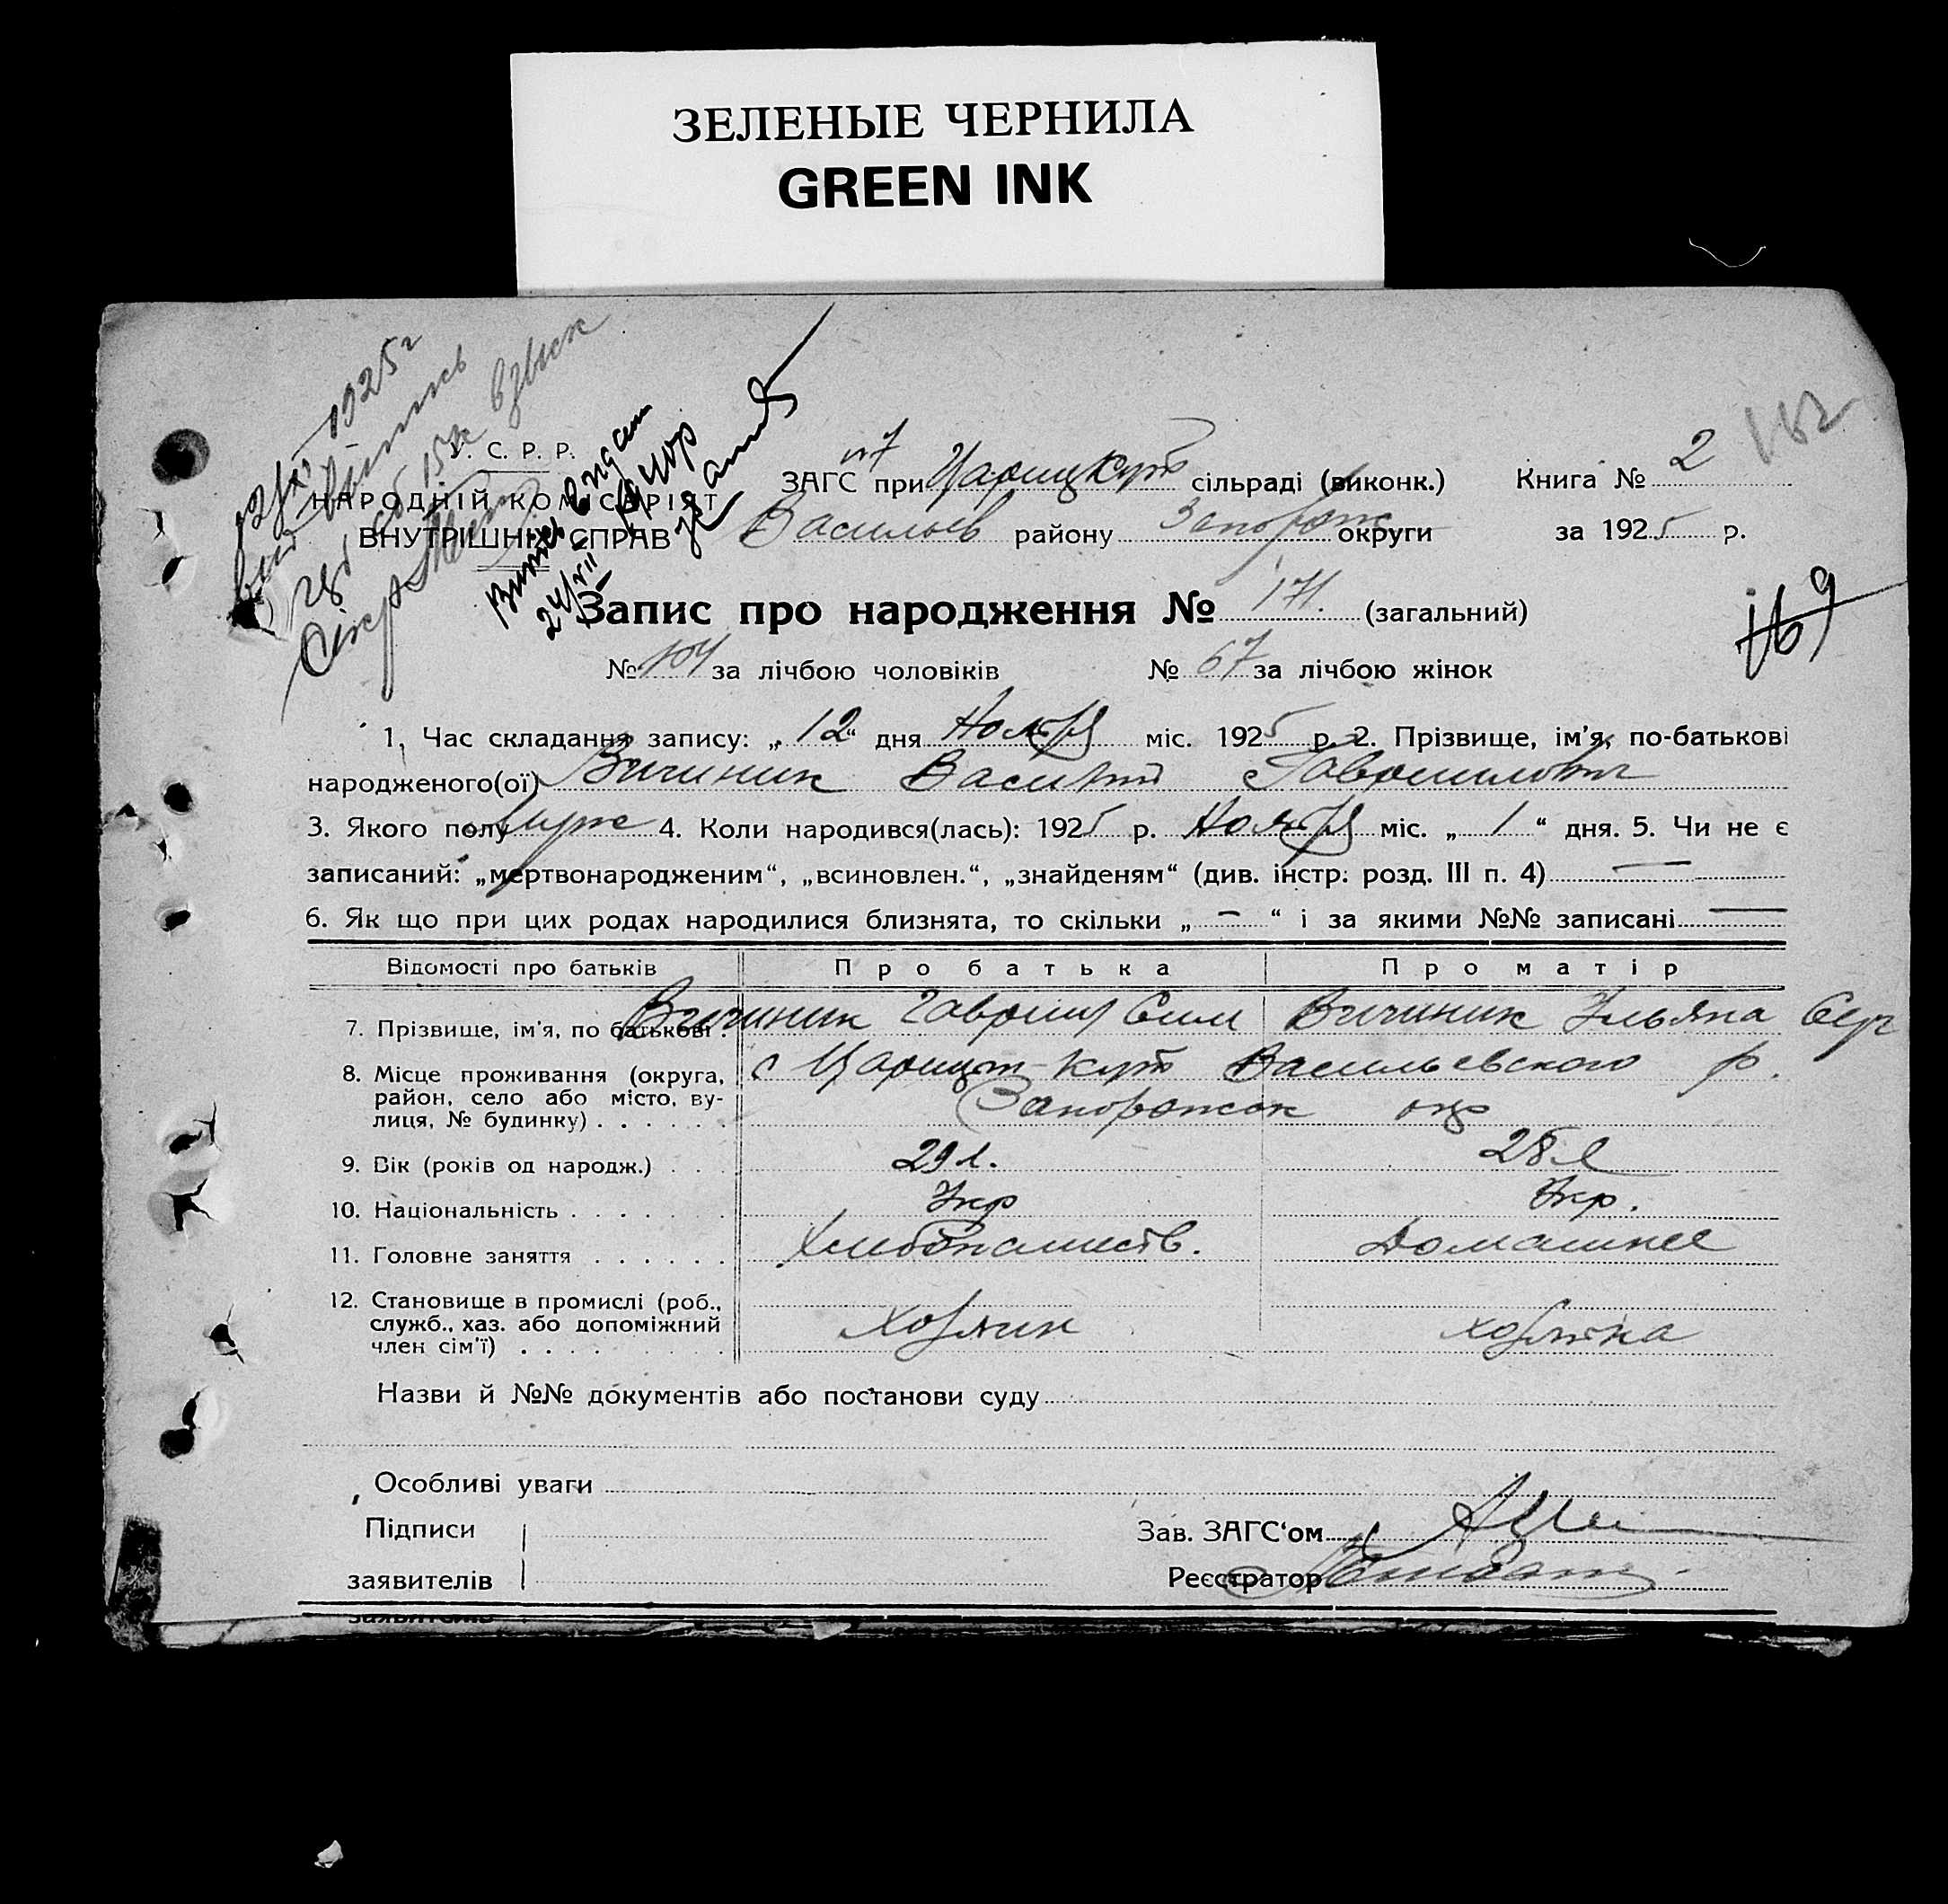 ЗЕЛЕНЫЕ ЧЕРНИЛА
GREEN INK
1925 г
У. С. Р. Р.
НАРОДНІЙ КОМІСАРІЯТ
ВНУТРІШНІХ СПРАВ
ЗАГС при Царицкут сільраді (виконк.) Книга № 2
Васильев району Запорож округи за 1925 р.
162
169
Запис про народження № 171. (загальний)
№ 104 за лічбою чоловіків № 67 за лічбою жінок
1. Час складання запису: „12“ дня Ноября міс. 1925 р. 2. Прізвище, ім’я, по-батькові
народженого(ої) Вичиник Василий Гавриилович
3. Якого полу муж 4. Коли народився(лась): 1925 р. Ноября міс. „1“ дня. 5. Чи не є
записаний: „мертвонародженим“, „всиновлен.“, „знайденям“ (див. інстр. розд. III п. 4) —
6. Як що при цих родах народилися близнята, то скільки „—“ і за якими №№ записані —
Відомості про батьків Про батька Про матір
7. Прізвище, ім’я, по батькові . Вичиник Гавриил Сим Вичиник Ульяна Сер
8. Місце проживання (округа, с Царицин-Кут Васильевского р.
район, село або місто, ву- Запорожск окр
лиця, № будинку) . . . . . .
9. Вік (років од народж.) . . . 29 л. 28 л
10. Національність . . . . . . Укр Укр.
11. Головне заняття . . . . . . Хлебопашеств. Домашнее
12. Становище в промислі (роб.,
служб., хаз. або допоміжний Хозяин хозяйка
член сім’ї) . . . . . . . .
Назви й №№ документів або постанови суду
Особливі уваги
Підписи Зав. ЗАГС‘ом
заявителів Реєстратор
заявителів